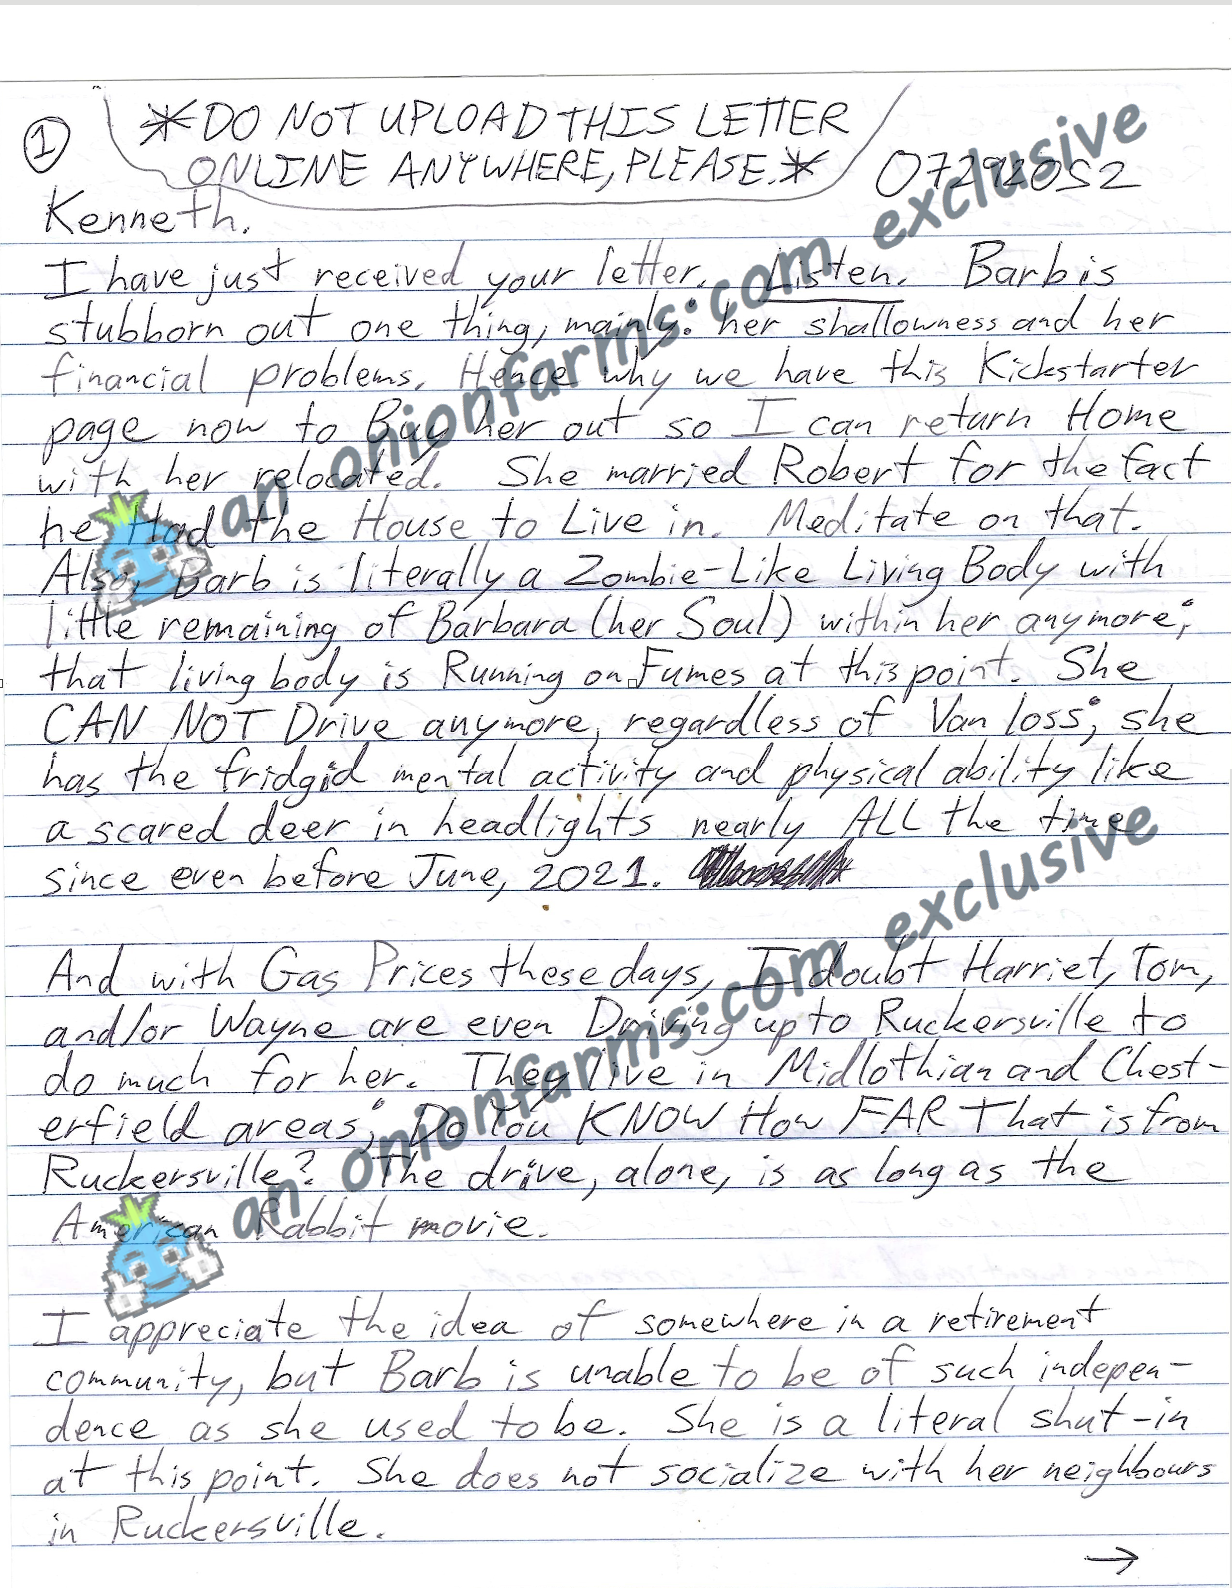 1
*DO NOT UPLOAD THIS LETTER
ONLINE ANYWHERE, PLEASE.*
Kenneth.
I have just received your letter. Listen. Barb is
stubborn out one thing, mainly: her shallowness and her
financial problems. Hence why we have this Kickstarter
page now to Buy her out so I can return Home
with her relocated. She married Robert for the fact
he Had the House to Live in. Meditate on that.
Also, Barb is literally a Zombie-Like Living Body with
little remaining of Barbara (her Soul) within her anymore;
that living body is Running on Fumes at this point. She
CAN NOT Drive anymore, regardless of Van loss; she
has the fridgid mental activity and physical ability like
a scared deer in headlights nearly ALL the time
since even before June, 2021.
And with Gas Prices these days, I doubt Harriet, Tom,
and/or Wayne are even Driving up to Ruckersville to
do much for her. They live in Midlothian and Chest-
erfield areas; Do You KNOW How FAR That is from
Ruckersville? The drive, alone, is as long as the
American Rabbit movie.
I appreciate the idea of somewhere in a retirement
community, but Barb is unable to be of such indepen-
dence as she used to be. She is a literal shut-in
at this point. She does not socialize with her neighbours
in Ruckersville.
→
an onionfarms.com exclusive
an onionfarms.com exclusive